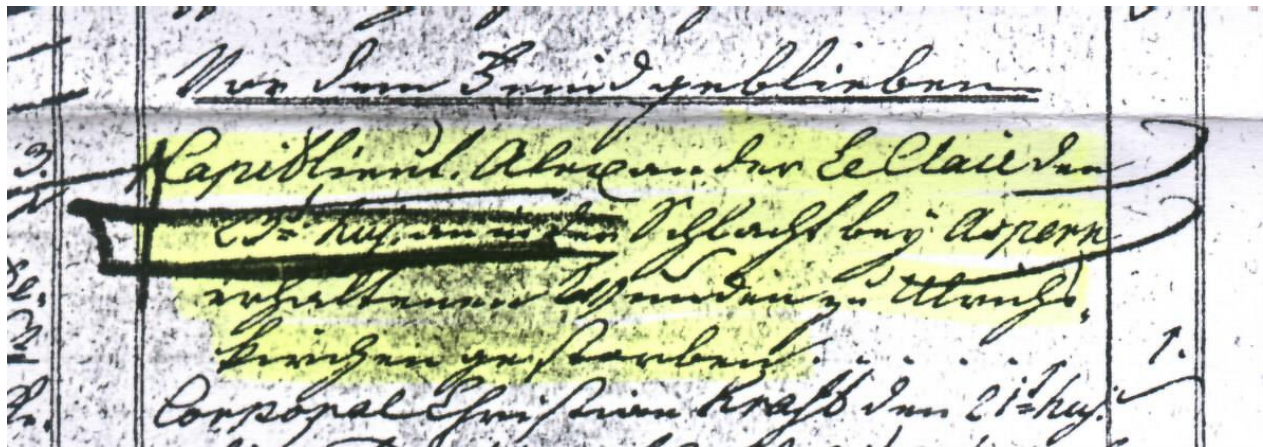 Vor dem Feind geblieben
Capitlieut. Alexander Le Clair den
23t. huj. an in der Schlacht bey Aspern
erhaltenen Wunden zu Ulrichs
kirchen gestorben . . . . . 1.
Corporal Christian Kraft den 21t huj.